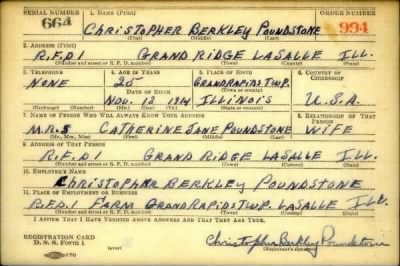 SERIAL NUMBER 1. NAME (Print) ORDER NUMBER
66A CHRISTOPHER BERKLEY POUNDSTONE 994
(First) (Middle) (Last)
2. ADDRESS (Print)
R.F.D1 GRAND RIDGE LASALLE ILL.
(Number and street or R. F. D. number) (Town) (County) (State)
3. TELEPHONE 4. AGE IN YEARS 5. PLACE OF BIRTH 6. COUNTRY OF CITIZENSHIP
NONE 25 GRANDRAPIDS TWP.
(Town or county)
NOV. 13 1914 ILLINOIS U.S.A
(Exchange) (Number) (Mo.) (Day) (Yr.) (State or country)
7. NAME OF PERSON WHO WILL ALWAYS KNOW YOUR ADDRESS 8. RELATIONSHIP OF THAT PERSON
MRS CATHERINE JANE POUNDSTONE WIFE
(Mr., Mrs., Miss) (First) (Middle) (Last)
9. ADDRESS OF THAT PERSON
R.F.D1 GRAND RIDGE LASALLE ILL.
(Number and street or R. F. D. number) (Town) (County) (State)
10. EMPLOYER'S NAME
CHRISTOPHER BERKLEY POUNDSTONE
11. PLACE OF EMPLOYMENT OR BUSINESS
R.F.D.1 FARM GRANDRAPIDS TWP. LASALLE ILL.
(Number and street or R. F. D. number) (Town) (County) (State)
I AFFIRM THAT I HAVE VERIFIED ABOVE ANSWERS AND THAT THEY ARE TRUE.
REGISTRATION CARD
D. S. S. Form 1 Christopher Berkley Poundstone
(Registrant's signature)